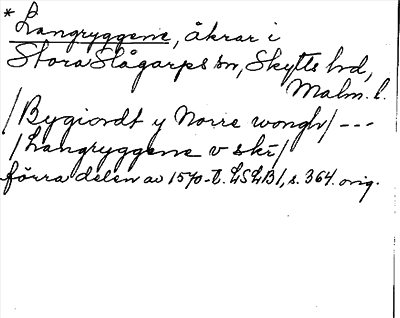 * Langryggene, åkrar i
Stora Slågarps sn, Skytts hd,
Malm. l.
/Bygiordt y Norre wongh/ ---
/Langryggene v skr/
förra delen av 1570-t. LSLB1, s. 364. orig.